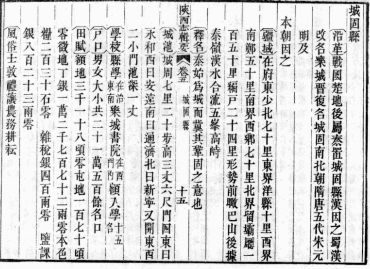 城固縣
沿革戰國楚地後屬秦置城固縣漢因之蜀漢
改名樂城晉復名城固南北朝隋唐五代宋元
明及
本朝因之
疆域在府東少北七十里東界洋縣十里西界
南鄭五十里南界西鄉七十里北界留壩廳一
百五十里編戶二十四里形勢前職巴山後據
秦嶺漢水合流五峯高峙
釋名秦始爲城而冀其鞏固之意也
陝西志輯要 卷五 城固縣 十五
城池城周七里二十步高三丈六尺門四東曰
永和西曰安遠南曰通濟北曰新寧又開東西
二小門池深一丈
學校縣學在治東南樂城書院在西門內額入學十五名
戶口男女大小共二十一萬五百餘名口
田賦額地三千一十八頃零屯地一百七十頃
零徵地丁銀一萬二千七百七十二兩零本色
糧二百三十石零 雜稅銀四百兩零 鹽課
銀八百二十三兩零
風俗士敦禮讓農務耕耘